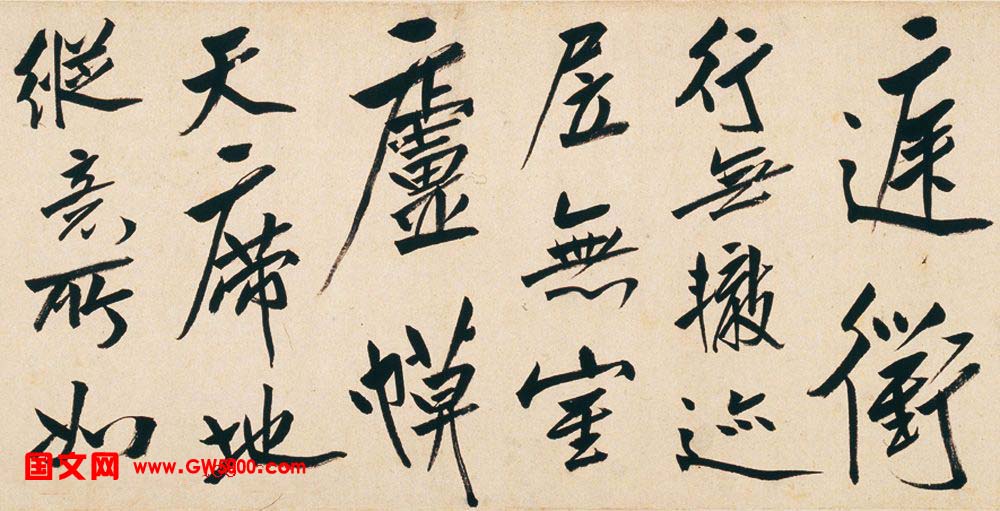 庭衢
行無轍迹
居無室
廬幙
天席地
縱意所如
国文网 www.GW5900.com